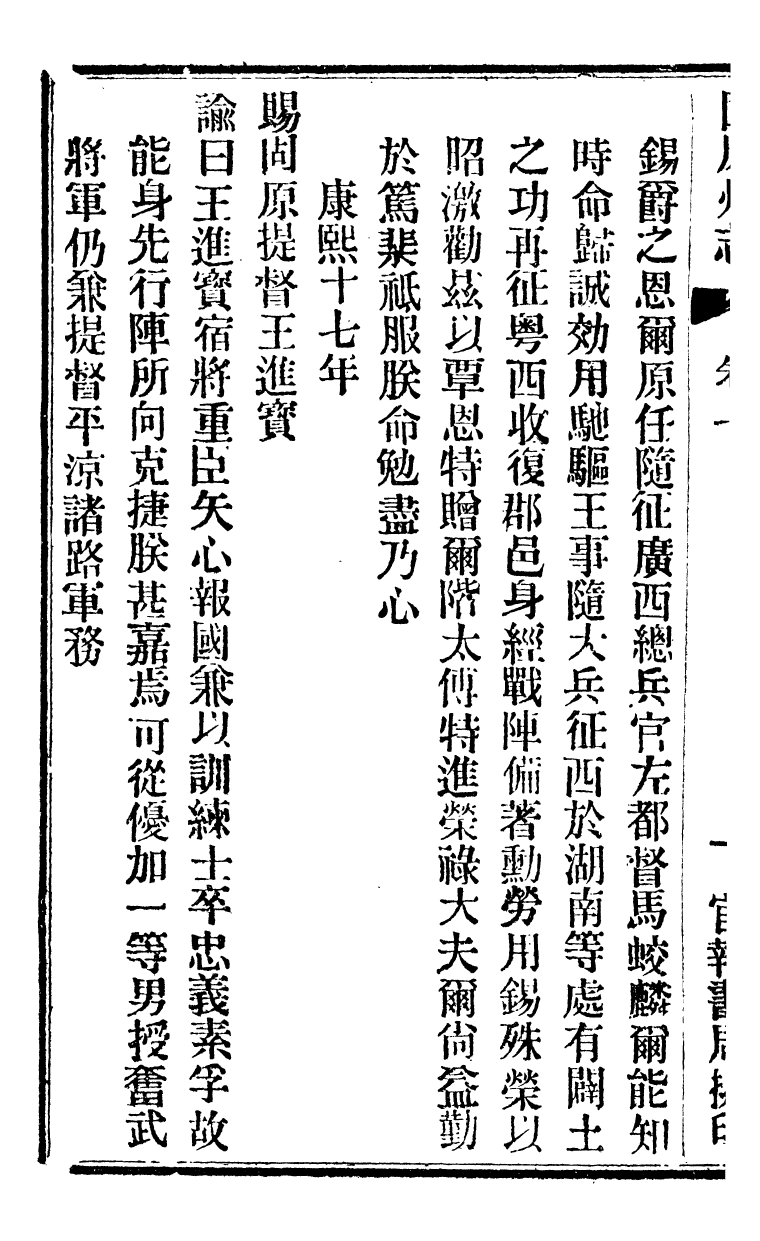 錫爵之恩爾原任隨征廣西總兵官左都督馬蛟麟爾能知
時命歸誠効用馳驅王事隨大兵征西於湖南等處有闢土
之功再征粵西收復郡邑身經戰陣備著勳勞用錫殊榮以
昭激勸茲以覃恩特贈爾階太傅特進榮祿大夫爾尙益勤
於篤棐祗服朕命勉盡乃心
康熙十七年
賜固原提督王進寶
諭曰王進寶宿將重臣矢心報國兼以訓練士卒忠義素孚故
能身先行陣所向克捷朕甚嘉焉可從優加一等男授奮武
將軍仍兼提督平涼諸路軍務